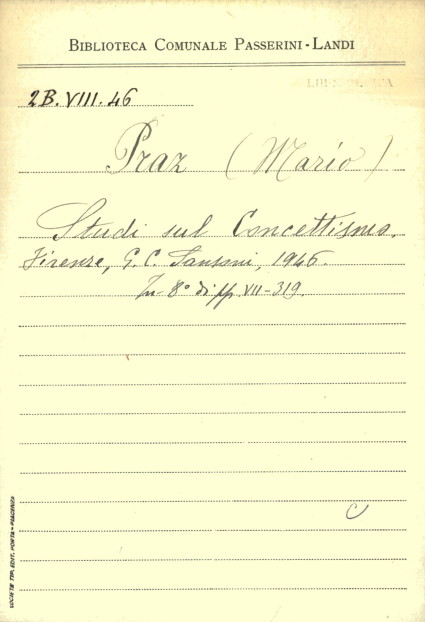 BIBLIOTECA COMUNALE PASSERINI-LANDI
2B.VIII.46
Praz (Mario)
Studi sul Concettismo.
Firenze, G. C. Sansoni, 1946.
In-8° di pp. VII-319.
SOCIETÀ TIP. EDIT. PORTA - PIACENZA